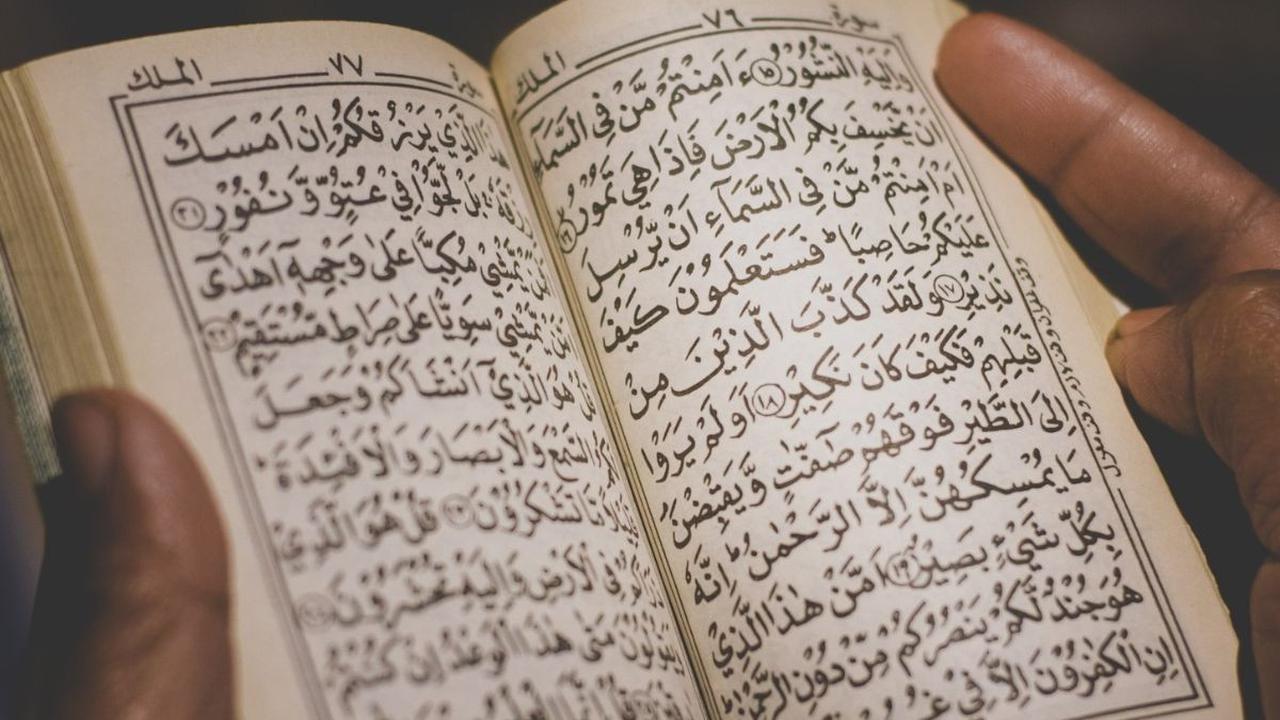 الملك ٧٦ سورة
وَاِلَيْهِ النُّشُوْرُ ۝١٥ ءَاَمِنْتُمْ مَّنْ فِى السَّمَآءِ
اَنْ يَّخْسِفَ بِكُمُ الْاَرْضَ فَاِذَا هِىَ تَمُوْرُ ۝١٦
اَمْ اَمِنْتُمْ مَّنْ فِى السَّمَآءِ اَنْ يُّرْسِلَ
عَلَيْكُمْ حَاصِبًا ؕ فَسَتَعْلَمُوْنَ كَيْفَ
نَذِيْرِ ۝١٧ وَلَقَدْ كَذَّبَ الَّذِيْنَ مِنْ
قَبْلِهِمْ فَكَيْفَ كَانَ نَكِيْرِ ۝١٨ اَوَلَمْ يَرَوْا
اِلَى الطَّيْرِ فَوْقَهُمْ صٓفّٰتٍ وَّيَقْبِضْنَ
مَا يُمْسِكُهُنَّ اِلَّا الرَّحْمٰنُ ؕ اِنَّهٗ
بِكُلِّ شَىْءٍۢ بَصِيْرٌ ۝١٩ اَمَّنْ هٰذَا الَّذِىْ
هُوَ جُنْدٌ لَّكُمْ يَنْصُرُكُمْ مِّنْ دُوْنِ الرَّحْمٰنِ ؕ
اِنِ الْكٰفِرُوْنَ اِلَّا فِىْ
الملك ٧٧ سورة
هٰذَا الَّذِىْ يَرْزُقُكُمْ اِنْ اَمْسَكَ
رِزْقَهٗ ۚ بَلْ لَّجُّوْا فِىْ عُتُوٍّ وَّنُفُوْرٍ ۝٢١
يَّمْشِىْ مُكِبًّا عَلٰى وَجْهِهٖۤ اَهْدٰٓى
يَّمْشِىْ سَوِيًّا عَلٰى صِرَاطٍ مُّسْتَقِيْمٍ ۝٢٢
هُوَ الَّذِىْۤ اَنْشَاَكُمْ وَجَعَلَ
السَّمْعَ وَالْاَبْصَارَ وَالْاَفْئِدَةَ ؕ
مَّا تَشْكُرُوْنَ ۝٢٣ قُلْ هُوَ الَّذِىْ
فِى الْاَرْضِ وَاِلَيْهِ تُحْشَرُوْنَ ۝٢٤
وَيَقُوْلُوْنَ مَتٰى هٰذَا الْوَعْدُ اِنْ كُنْتُمْ